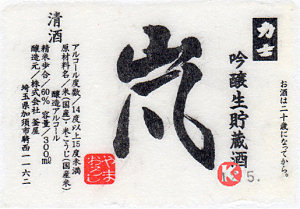 お酒は二十歳になってから。
力士
吟醸生貯蔵酒
K
5.
嵐
やまおろし
清酒
アルコール度数/14度以上15度未満
原材料名/米(国産)・米こうじ(国産米)
醸造アルコール
精米歩合/60% 容量/300ml
醸造元/株式会社 釜屋
埼玉県加須市騎西一一六二